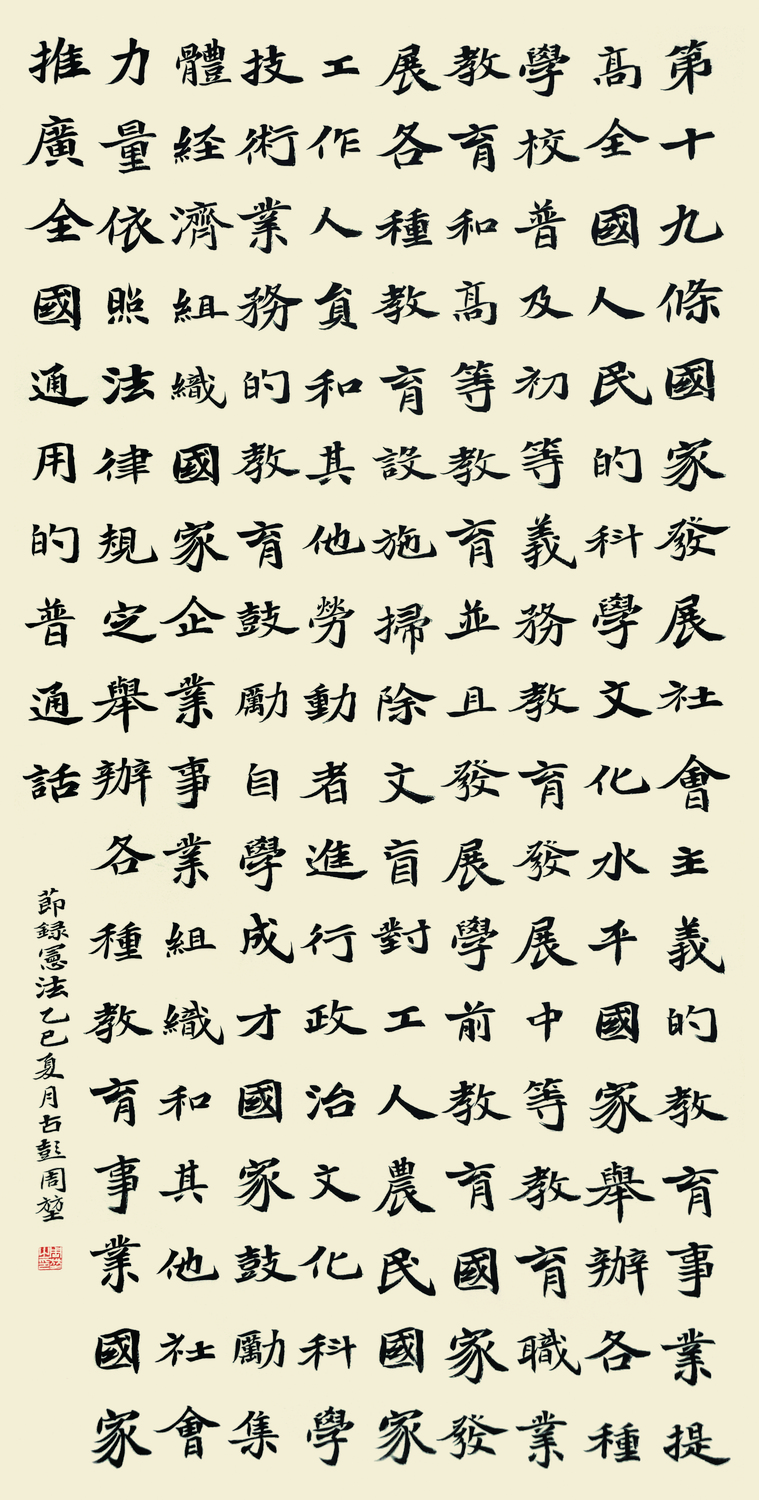 第十九條國家發展社會主義的教育事業提
高全國人民的科學文化水平國家舉辦各種
學校普及初等義務教育發展中等教育職業
教育和高等教育並且發展學前教育國家發
展各種教育設施掃除文盲對工人農民國家
工作人員和其他勞動者進行政治文化科學
技術業務的教育鼓勵自學成才國家鼓勵集
體経濟組織國家企業事業組織和其他社會
力量依照法律規定舉辦各種教育事業國家
推廣全國通用的普通話
節録憲法乙巳夏月古彭周堃